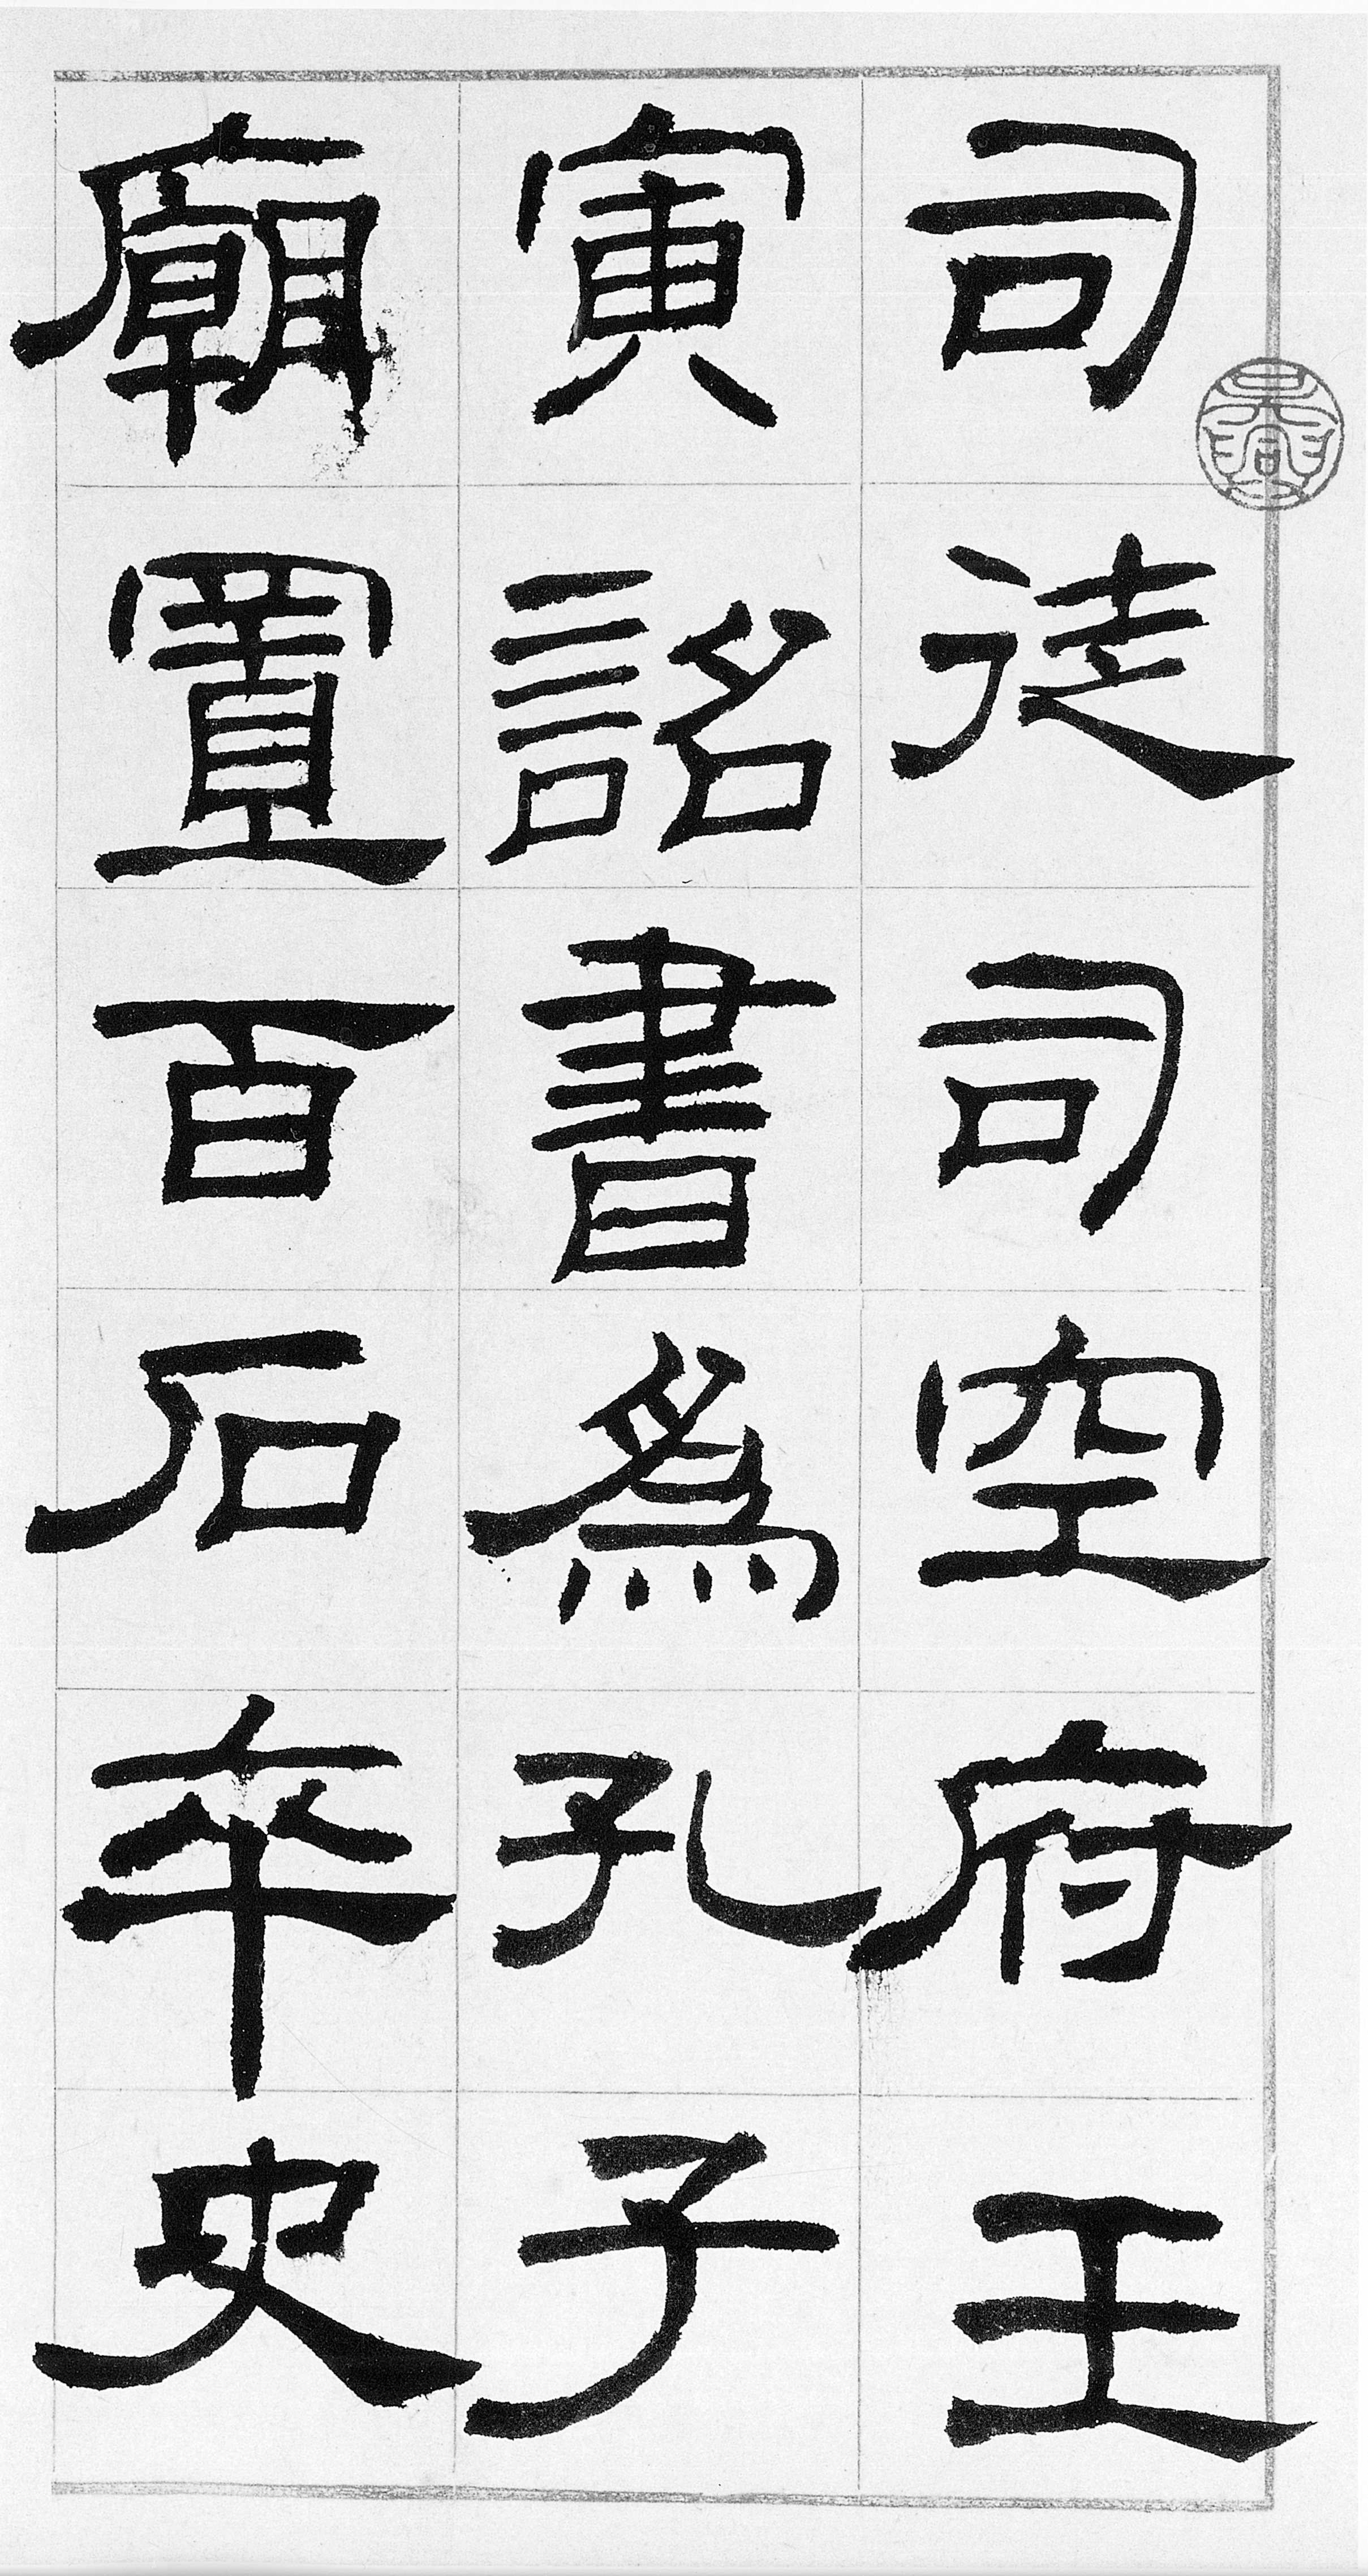 司徒司空府王
寅詔書爲孔子
廟置百石卒史